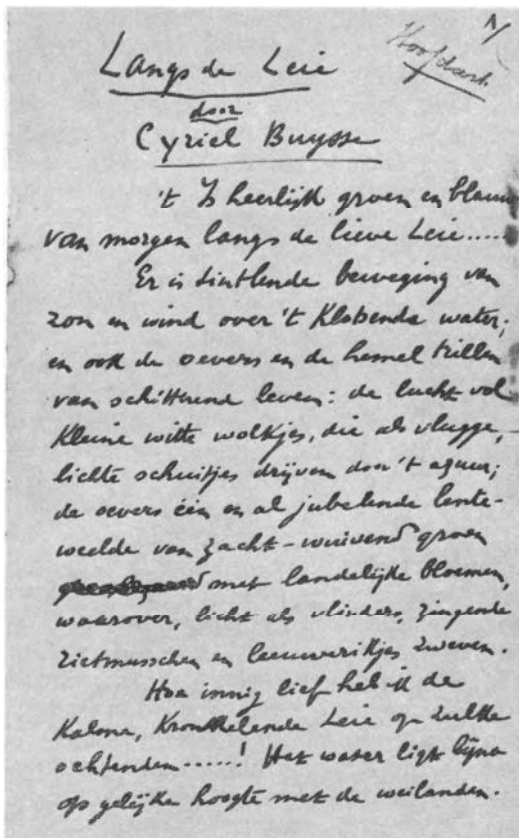 1/
Hoofdart.
Langs de Leie
door
Cyriel Buysse
't Is heerlijk groen en blauw
van morgen langs de lieve Leie.....
Er is tintlende beweging van
zon en wind over 't klotsende water;
en ook de oevers en de hemel trillen
van schitterend leven: de lucht vol
kleine witte wolkjes, die als vlugge,
lichte schuitjes drijven door 't azuur;
de oevers één en al jubelende lente-
weelde van zacht-wuivend groen
met landelijke bloemen,
waarover, licht als vlinders, zingende
zietmusschen en leeuwerikjes zweven.
Hoe innig lief heb ik de
kalme, kronkelende Leie op zulke
ochtenden.....! Het water ligt bijna
op gelijke hoogte met de weilanden.